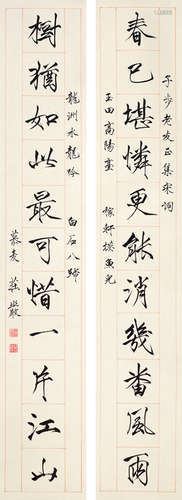 子步老友正集宋詞
春已堪憐更能消幾番風雨
玉田高陽臺 稼軒摸魚兒
龍洲水龍吟 白石八歸
樹猶如此最可惜一片江山
慕夌 莊嚴